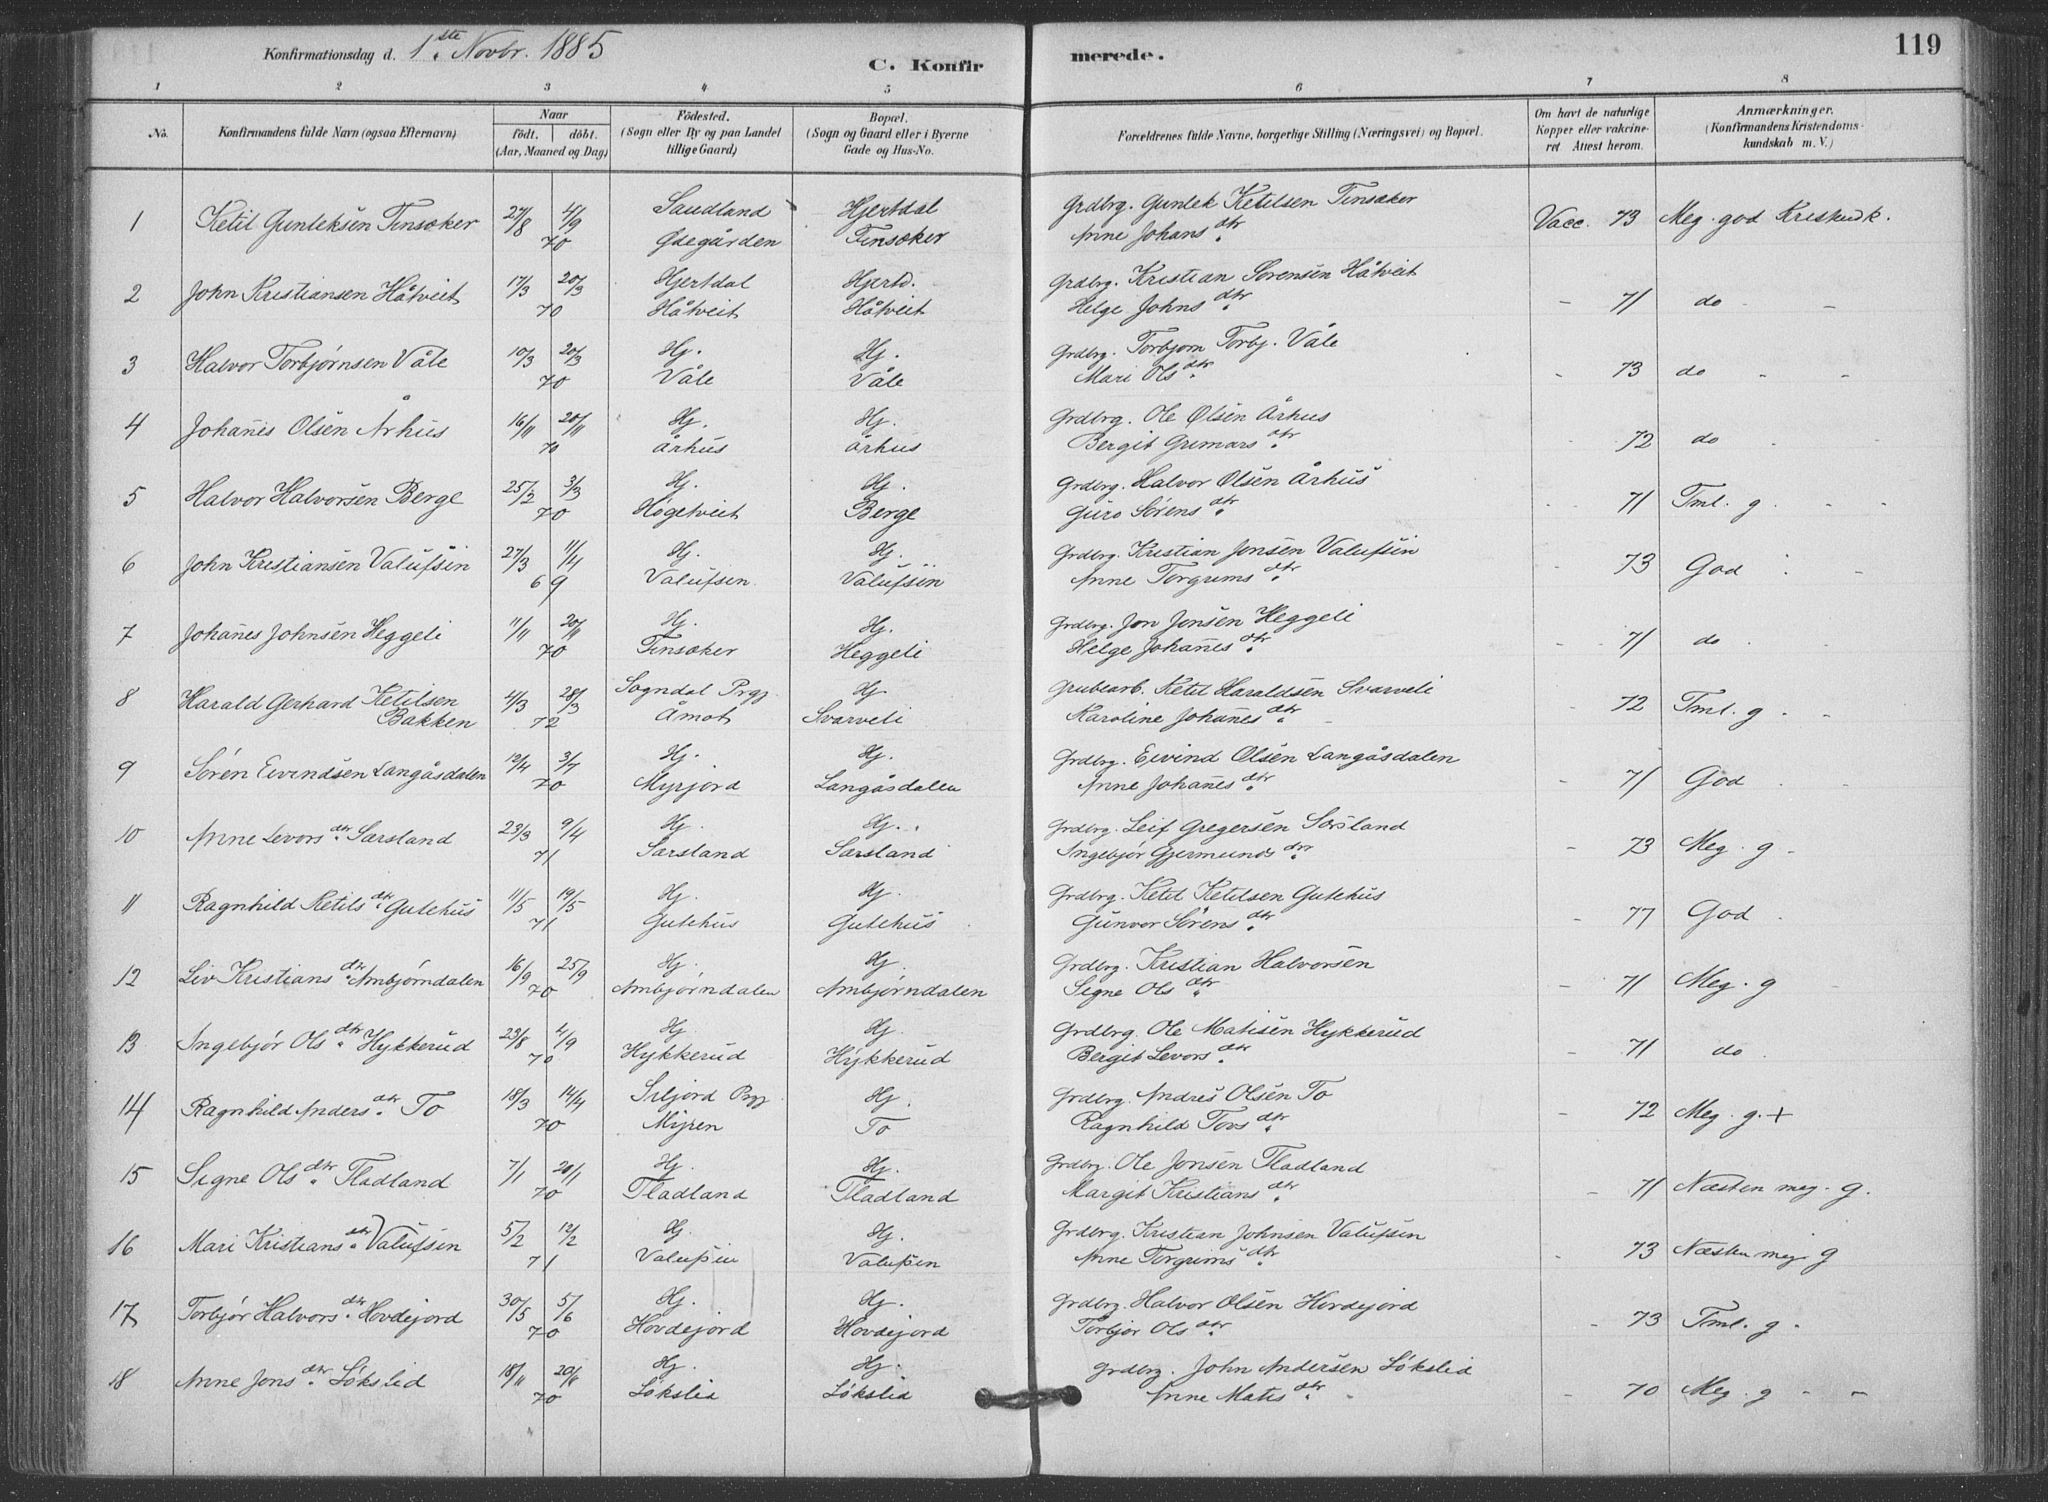 Konfirmationsdag d. 1ste Novbr. 1885
C. Konfirmerede.
119
1 2 3 4 5 6 7 8
No. Konfirmandens fulde Navn (ogsaa Efternavn) Naar født. døbt. (Aar, Maaned og Dag) Fødested. (Sogn eller By og paa Landet tillige Gaard) Bopæl. (Sogn og Gaard eller i Byerne Gade og Hus-No. Forældrenes fulde Navne, borgerlige Stilling (Næringsvei) og Bopæl. Om havt de naturlige Kopper eller vakcineret Attest herom. Anmærkninger. (Konfirmandens Kristendomskundskab m. V.)
1 Ketil Gunleksen Tinsæker 27/8 4/9 70 Saudland Ødegården Hjertdal Tinsæker Grdbrg. Gunlek Ketilsen Tinsæker Anne Johansdtr. Vacc. 73 Meg. god Kristendk.
2 John Kristiansen Håtveit 17/3 20/3 70 Hjertdal Håtveit Hjertd. Håtveit Grdbrg. Kristian Sørensen Håtveit Helge Johnsdtr. - 71 do -
3 Halvor Torbjørnsen Våle 10/3 20/3 70 Hj. Våle Hj. Våle Grdbrg. Torbjørn Torbj. Våle Mari Olsdtr. - 73 do - -
4 Johañes Olsen Århus 16/11 20/11 70 Hj. Århus Hj. Århus Grdbrg. Ole Olsen Århus Bergit Gunnarsdtr. 72 do
5 Halvor Halvorsen Berge 25/2 3/3 70 Hj. Høgetveit Hj. Berge Grdbrg. Halvor Olsen Århus Guro Sørensdtr. - 71 Tml. g. - -
6 John Kristiansen Valufsin 27/3 11/4 69 Hj. Valufsin. Hj. Valufsin Grdbrg. Kristian Jensen Valufsin Anne Torgrimsdtr. - 73 God -
7 Johañes Johnsen Heggeli 11/11 20/11 70 Hj. Tinsæker Hj. Heggeli Grdbrg. Jon Jonsen Heggeli Helge Johañesdtr. - 71 do -
8 Harald Gerhard Ketilsen Bakken 4/3 28/3 72 Sogndal Prgj. Åmot Hj Svarveli Grubearb. Ketil Haraldsen Svarveli Karoline Johañesdtr. - 72 Tml. g - -
9 Søren Eivindsen Langåsdalen 12/4 3/7 70 Hj. Myrjord Hj. Langåsdalen Grdbrg. Eivind Olsen Langåsdalen Anne Johañesdtr. - 71 God
10 Anne Levorsdtr. Særsland 23/3 9/4 71 Hj. Særsland Hj. Særsland Grdbrg. Leif Gregersen Særsland Ingebjør Gjermundsdtr. - 73 Meg. g -
11 Ragnhild Ketilsdtr. Gutehus 11/5 19/5 71 Hj. Gutehus Hj. Gutehus Grdbrg. Ketil Ketilsen Gutehus Gunvor Sørensdtr. - 77 God
12 Liv Kristiansdtr. Ambjørndalen 16/9 25/9 70 Hj. Ambjørndalen Hj. Ambjørndalen Grdbrg. Kristian Halvorsen Signe Olsdtr. - 71 Meg. g -
13 Ingebjør Olsdtr. Hykkerud 23/8 4/9 70 Hj. Hykkerud Hj. Hykkerud Grdbrg. Ole Matisen Hykkerud Bergit Levorsdtr. - 71 do
14 Ragnhild Andersdtr. To 18/3 14/4 70 Siljord Prgj. Myren Hj. To Grdbrg. Andres Olsen To Ragnhild Tovsdtr. - 72 Meg. g. +
15 Signe Olsdtr. Fladland 7/1 20/1 70 Hj. Fladland Hj. Fladland Grdbrg. Ole Jonsen Fladland Margit Kristiansdtr. - 71 Næsten meg. g.
16 Mari Kristiansdtr. Valufsin 5/2 12/2 71 Hj. Valufsin Hj. Valufsin Grdbrg. Kristian Johnsen Valufsin Anne Torgrimsdtr. - 73 Næsten meg g
17 Torbjør Halvorsdtr. Hovdejord 30/5 5/6 70 Hj. Hovdejord Hj. Hovdejord Grdbrg. Halvor Olsen Hovdejord Torbjør Olsdtr. - 73 Tml. g.
18 Anne Jonsdtr. Løkslid 18/11 20/11 70 Hj. Løkslid Hj. Løkslid Grdbrg. John Andersen Løkslid Anne Matisdtr. - 70 Meg. g - -